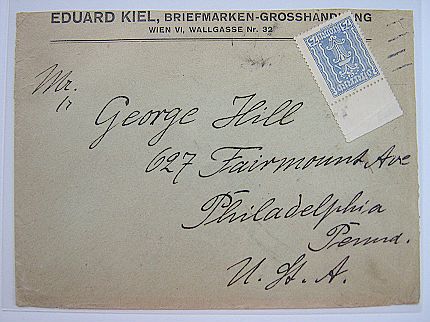 EDUARD KIEL, BRIEFMARKEN-GROSSHANDLUNG
WIEN VI, WALLGASSE Nr. 32
Mr.
George Hill
627 Fairmount Ave
Philadelphia
Penna.
U. St. A.